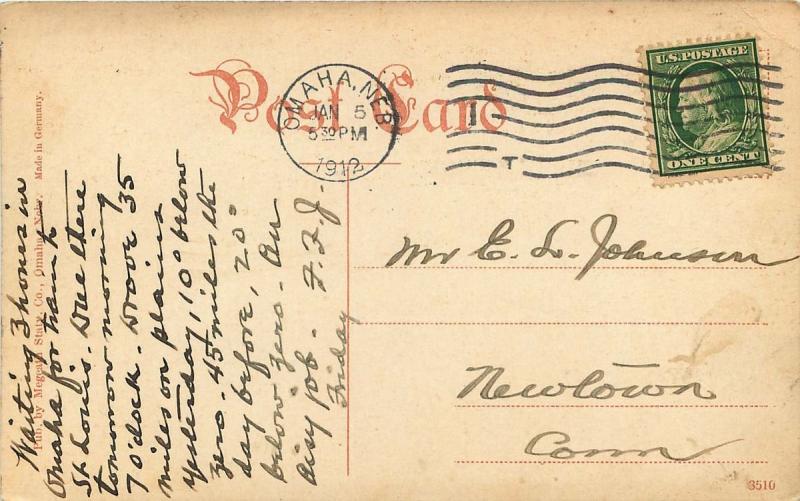 Post Card
OMAHA, NEB.
JAN 5
5 30 PM
1912
U.S. POSTAGE
ONE CENT
Pub. by Megeath Staty. Co., Omaha, Nebr. Made in Germany.
Waiting 3 hours in
Omaha for train to
St Louis. Due there
tomorrow morning
7 o'clock. Drove 35
miles on plains
yesterday, 10° below
zero. 45 miles the
day before, 20°
below zero. An
airy job. F. F. J.
Friday
Mr E. L. Johnson
Newtown
Conn
3510